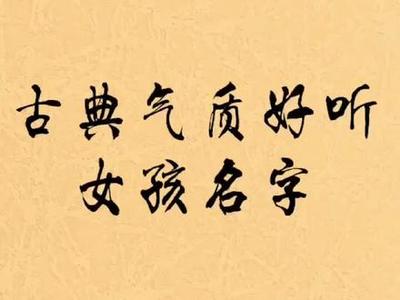 古典气质好听
女孩名字